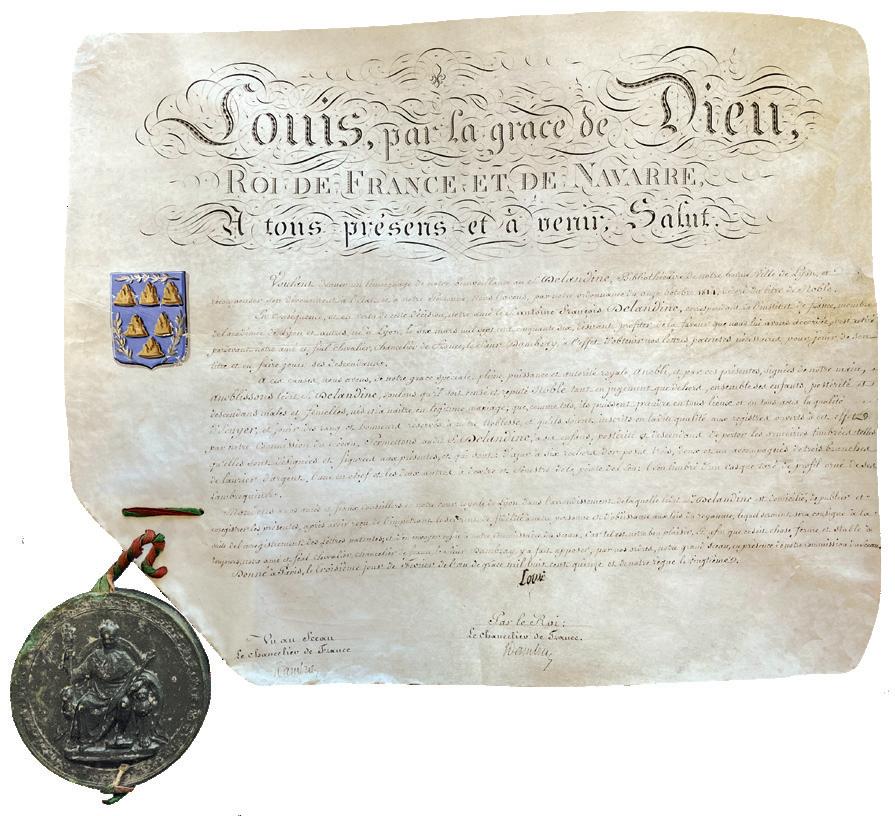 Louis, par la grace de Dieu,
ROI DE FRANCE ET DE NAVARRE,
A tous présens et à venir, Salut.
Voulant donner un témoignage de notre bienveillance au S. Delandine, Bibliothécaire de notre bonne Ville de Lyon, et
récompenser son dévouement à l'état et à notre personne, Nous l'avons, par notre ordonnance du onze octobre 1814, décoré du titre de Noble.
En conséquence, et en vertu de cette décision, notre amé le S. antoine François Delandine, correspondant de l'institut de france, membre
de l'académie de Lyon et autres, né à Lyon, le six mars mil sept cent cinquante six, désirant profiter de la faveur que nous lui avons accordée, s'est retiré
pardevant notre amé et féal chevalier, Chancelier de France, le Sieur Dambray, à l'effet d'obtenir nos lettres patentes nécessaires pour jouir de son
titre et en faire jouir ses descendans.
A ces causes, nous avons, de notre grace spéciale, pleine puissance et autorité royale anobli, et par ces présentes, signées de notre main,
anoblissons ledit S. Delandine, voulons qu'il soit censé et réputé Noble tant en jugement que dehors, ensemble ses enfants, postérité et
descendans mâles et femelles, nés et à naître en légitime mariage, que, comme tels, ils puissent prendre en tous lieux et en tous actes la qualité
d'Ecuyer, et jouir des rang et honneurs réservés à notre Noblesse, et qu'ils soient inscrits en ladite qualité aux registres ouverts à cet effet
par notre Commission du Sceau, Permettons audit S. Delandine, à ses enfans, postérité et descendans de porter les armoiries timbrées telles
qu'elles sont désignées et figurées aux présentes, et qui sont d'azur à six rochers d'or posés trois, deux et un accompagnés de trois branches
de laurier d'argent, l'une en chef et les deux autres à dextre et senestre de la pointe de l'écu; l'écu timbré d'un casque taré de profil orné de ses
lambrequins.
Mandons à nos amés et féaux conseillers en notre cour royale de Lyon dans l'arrondissement de laquelle ledit S. Delandine est domicilié, de publier et
enregistrer les présentes, après avoir reçu de l'impétrant le serment de fidélité à notre personne et d'obéissance aux lois du royaume, lequel serment sera consigné à la
suite de l'enregistrement des Lettres patentes, et en envoyer notre commission du sceau, Car tel est notre bon plaisir, Et, afin que ce soit chose ferme et stable à
toujours, notre amé et féal chevalier, chancelier de France, le Sieur Dambray, y a fait apposer, par nos ordres, notre grand Sceau, en présence de notre commission du sceau.
Donné à Paris, le troisième jour de Février de l'an de grace mil huit cent quinze et de notre règne le vingtième.
Louis
Vu au Sceau
Le chancelier de France
Dambray
Par le Roi:
Le chancelier de France.
Dambray